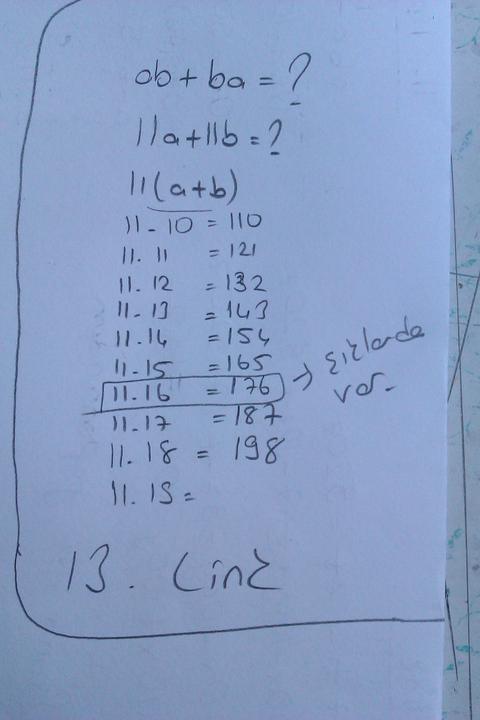 ab + ba = ?
11a + 11b = ?
11 (a+b)
11 - 10 = 110
11. 11 = 121
11. 12 = 132
11. 13 = 143
11. 14 = 154
11. 15 = 165
11. 16 = 176 → şıklarda var.
11. 17 = 187
11. 18 = 198
11. 19 =
13.